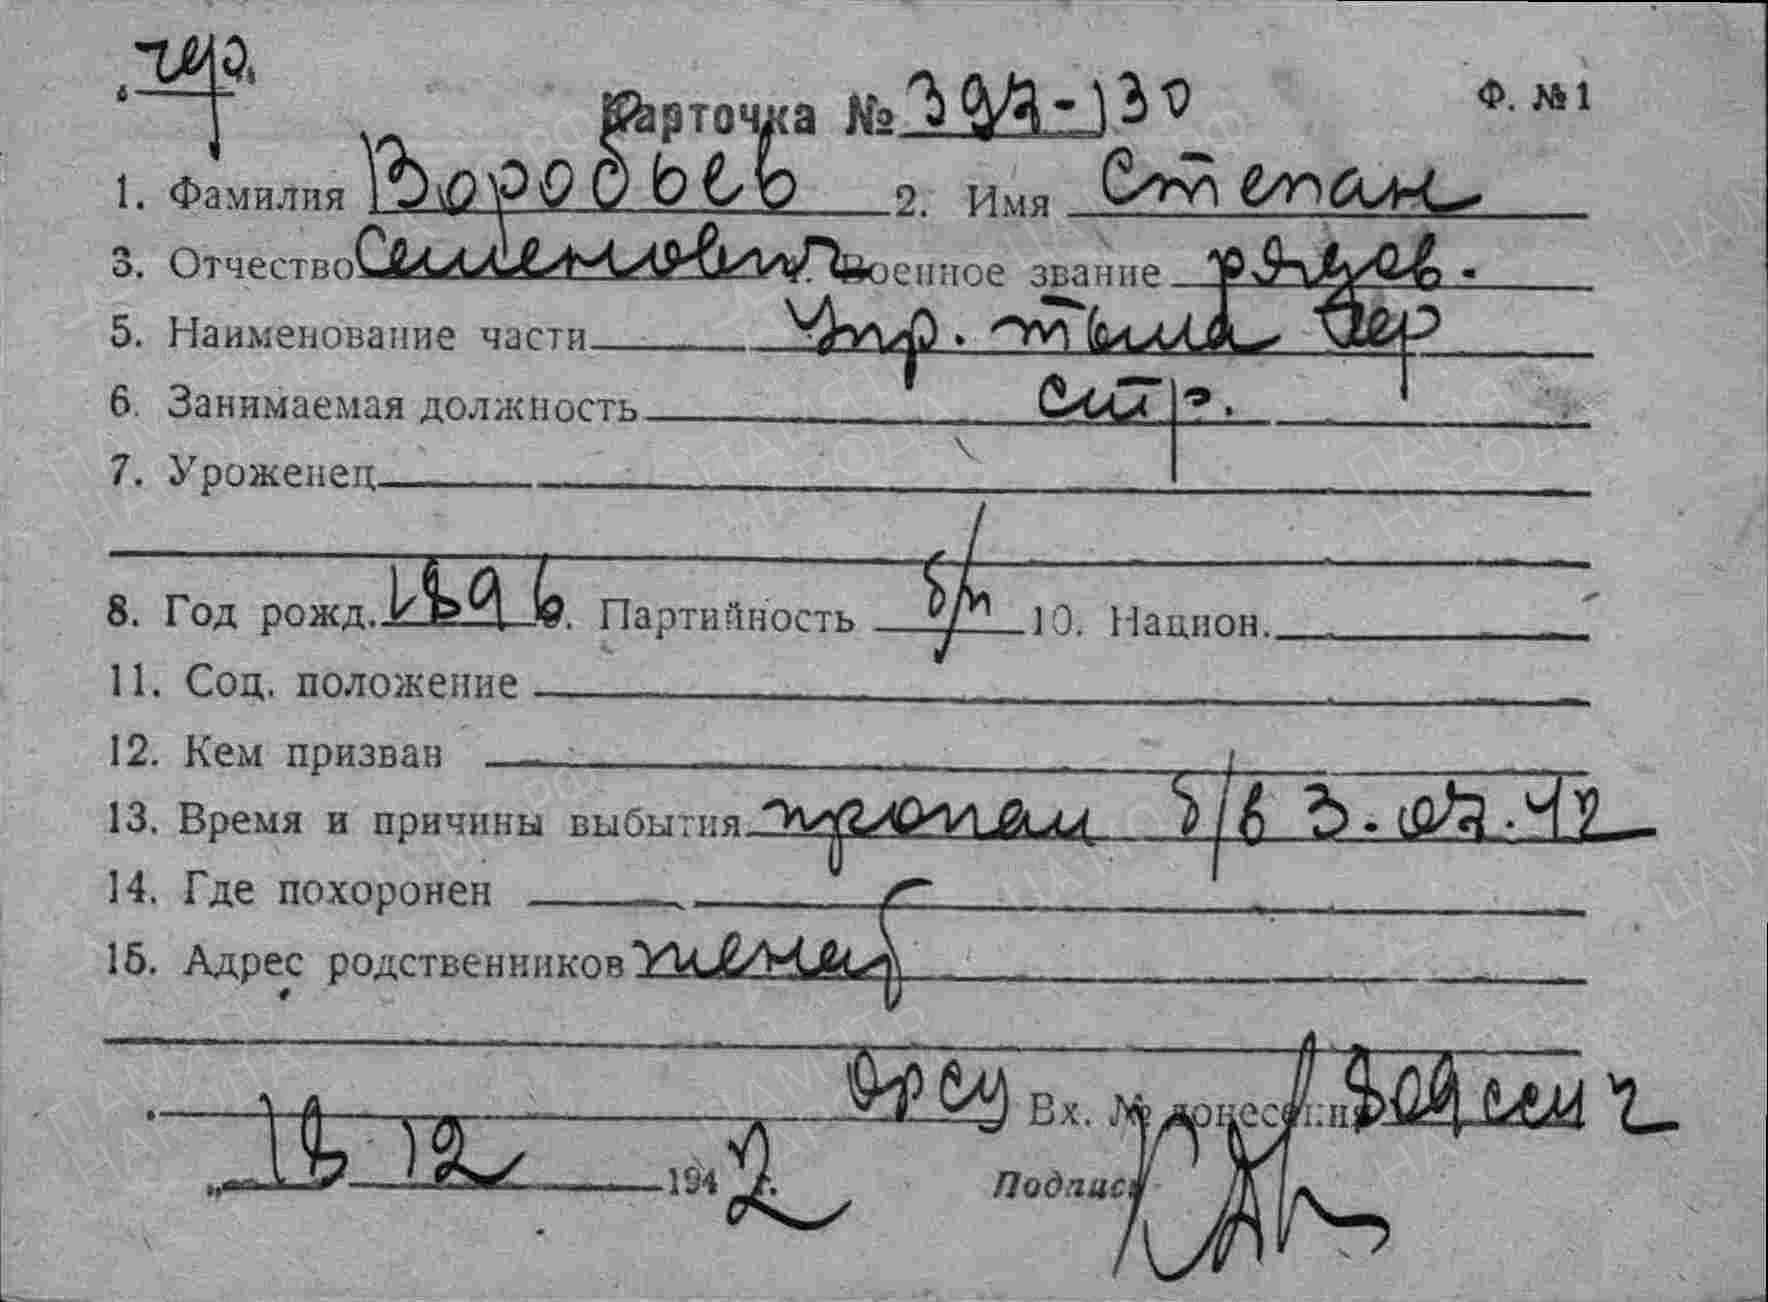 чер.
Карточка № 397-130 Ф. № 1
1. Фамилия Воробьев 2. Имя Степан
3. Отчество Семенович 4. Военное звание рядов.
5. Наименование части Упр. тыла Чер
6. Занимаемая должность стр.
7. Уроженец
8. Год рожд. 1896 9. Партийность б/п 10. Национ.
11. Соц. положение
12. Кем призван
13. Время и причины выбытия пропал б/в 3.07.42
14. Где похоронен
15. Адрес родственников жена
орсу Вх. № донесения 809
„ 18 12 1942 г. Подпись